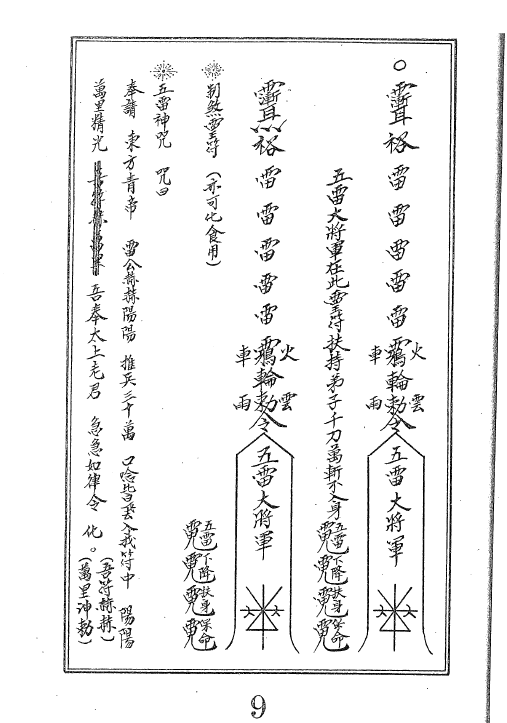 裕
雷
雷
雷
雷
雷
火
車
輪
雲
雨
敕令
五雷大將軍
五雷大將軍在此靈符扶持弟子千刀萬斬不入身
五雷下降扶身保命
裕
雷
雷
雷
雷
雷
火
車
輪
雲
雨
敕令
五雷大將軍
五雷下降扶身保命
制煞靈符(亦可化食用)
五雷神咒 咒曰
奉請 東方青帝 雷公赫赫陽陽 推兵三十萬 口唸皆 入我符中 陽陽
萬里精光 吾奉太上老君 急急如律令 化。
(吾符赫赫)
(萬里沖勅)
9